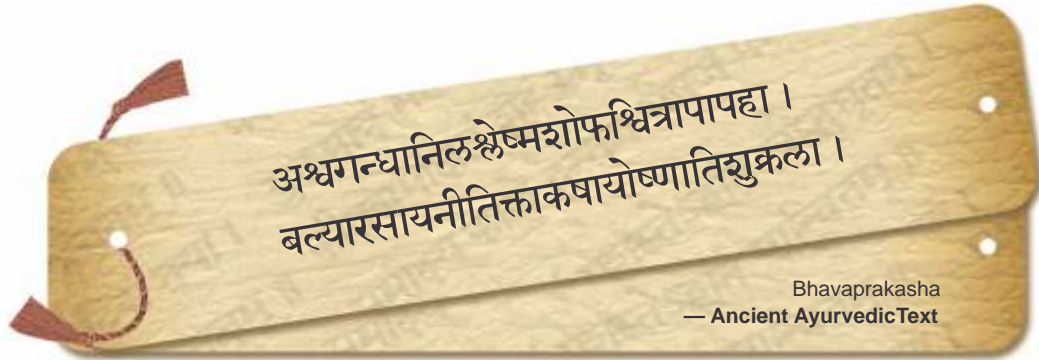 अश्वगन्धानिलश्लेष्मशोफश्वित्रापापहा ।
बल्यारसायनीतिक्ताकषायोष्णातिशुक्रला ।
Bhavaprakasha
— Ancient AyurvedicText